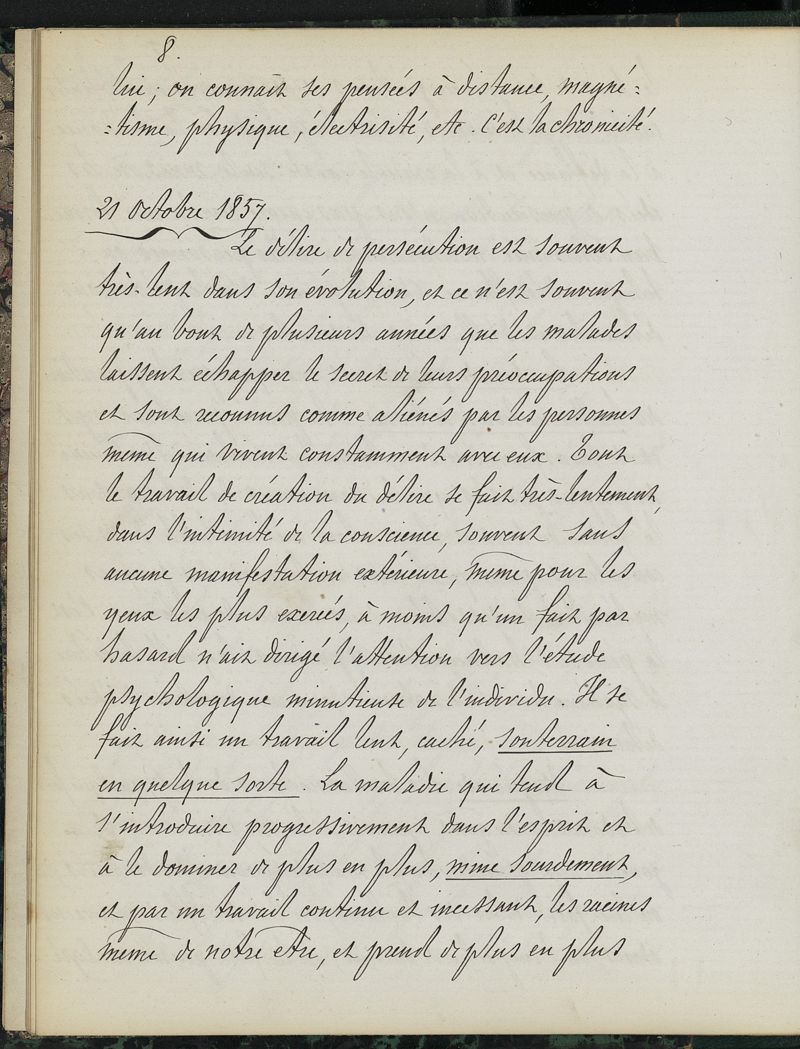 8.
lui ; on connait ses pensées à distance, magné-
-tisme, physique, électrisité, etc. C'est la chronicité.
21 Octobre 1857.
Le délire de persécution est souvent
très-lent dans son évolution, et ce n'est souvent
qu'au bout de plusieurs années que les malades
laissent échapper le secret de leurs préoccupations
et sont reconnus comme aliénés par les personnes
même qui vivent constamment avec eux. Tout
le travail de création du délire se fait très-lentement,
dans l'intimité de la conscience, souvent sans
aucune manifestation extérieure, même pour les
yeux les plus exercés, à moins qu'un fait par
hasard n'ait dirigé l'attention vers l'étude
psychologique minutieuse de l'individu. Il se
fait ainsi un travail lent, caché, souterrain
en quelque sorte. La maladie qui tend à
s'introduire progressivement dans l'esprit et
à le dominer de plus en plus, mine sourdement,
et par un travail continu et incessant, les racines
même de notre être, et prend de plus en plus